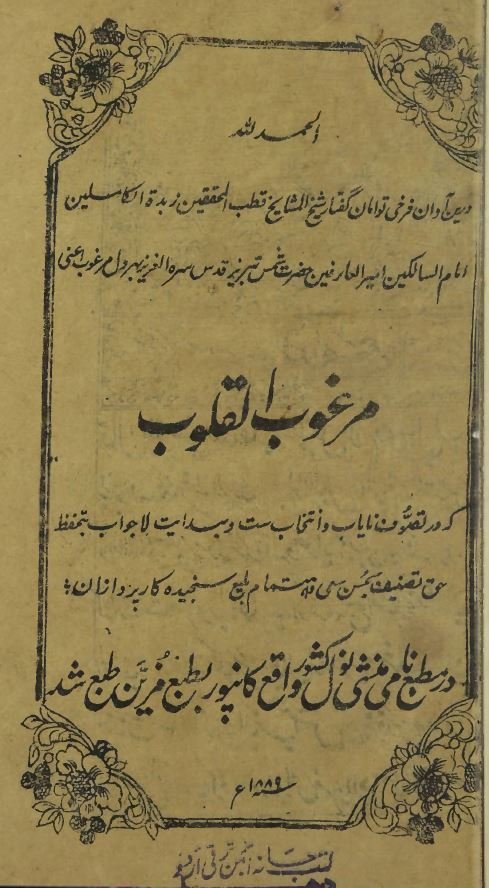 الحمد لله
درین آوان فرخی توامان گفتار شیخ المشایخ قطب المحققین زبدة الکاملین
امام السالکین امیر العارفین حضرت شمس تبریز قدس سره العزیز بهر دل مرغوب اعنی
مرغوب القلوب
که در تصوف نایاب و انتخاب ست و بهدایت لاجواب بتحفظ
حق تصنیف بحسن سعی و اهتمام بلیغ سنجیده کارپردازان
در مطبع نامی منشی نولکشور واقع کانپور بطبع مزین طبع شد
سنه ۱۸۸۹ع
کتب خانه انجمن ترقی اردو